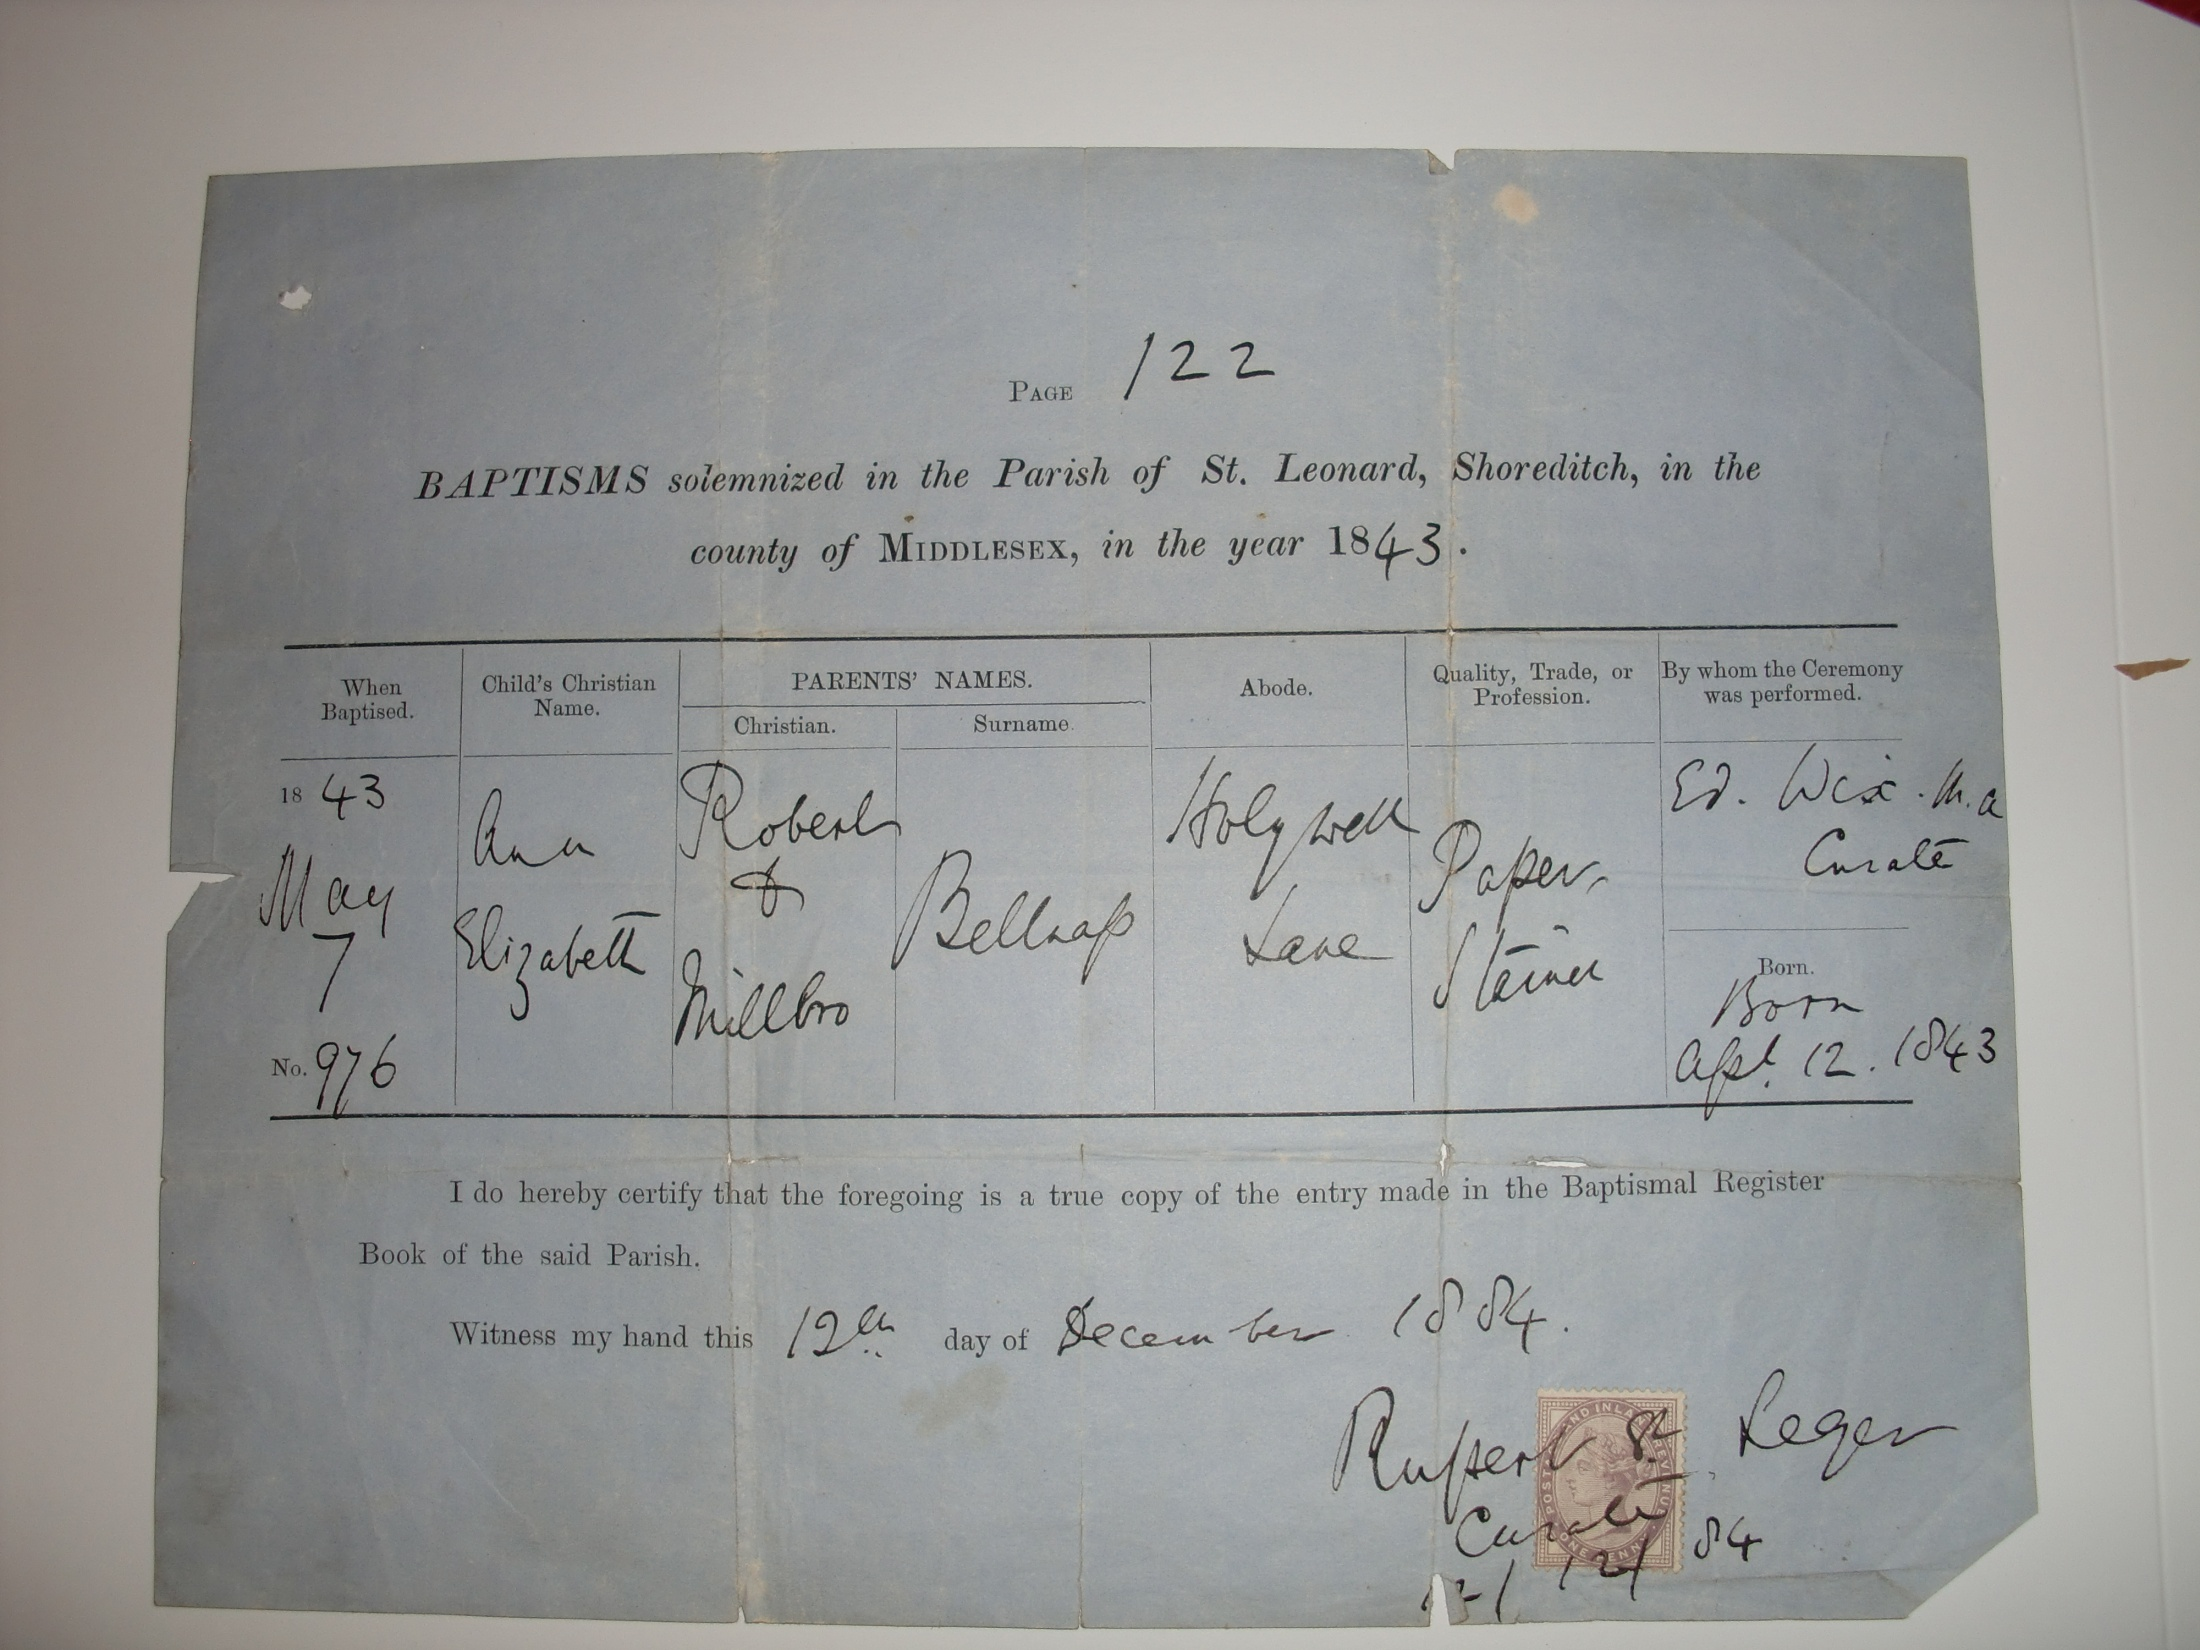 PAGE 122
BAPTISMS solemnized in the Parish of St. Leonard, Shoreditch, in the
county of MIDDLESEX, in the year 1843.
When Baptised.
Child's Christian Name.
PARENTS' NAMES.
Christian.
Surname.
Abode.
Quality, Trade, or Profession.
By whom the Ceremony was performed.
1843
May
7
No. 976
Ann
Elizabeth
Robert
&
Millbro
Bellnap
Holywell
Lane
Paper
Stainer
Ed. Wix. M.a
Curate
Born.
Born
Apl. 12. 1843
I do hereby certify that the foregoing is a true copy of the entry made in the Baptismal Register
Book of the said Parish.
Witness my hand this 12th day of December 1884.
Rupert St. Leger
Curate
12/12/84
POSTAGE AND INLAND REVENUE
ONE PENNY